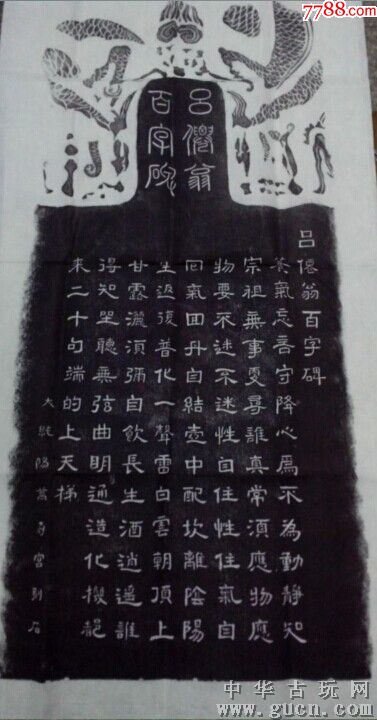 7788.com
呂僊翁
百字碑
呂僊翁百字碑
養氣忘言守降心爲不為動靜知
宗祖無事更尋誰真常須應物應
物要不迷不迷性自住性住氣自
回氣回丹自結壺中配坎離陰陽
生返復普化一聲雷白雲朝頂上
甘露灑須彌自飲長生酒逍遥誰
得知坐聽無弦曲明通造化機都
来二十句端的上天梯
大 陽萬壽宮刻石
中华古玩网
www.gucn.com